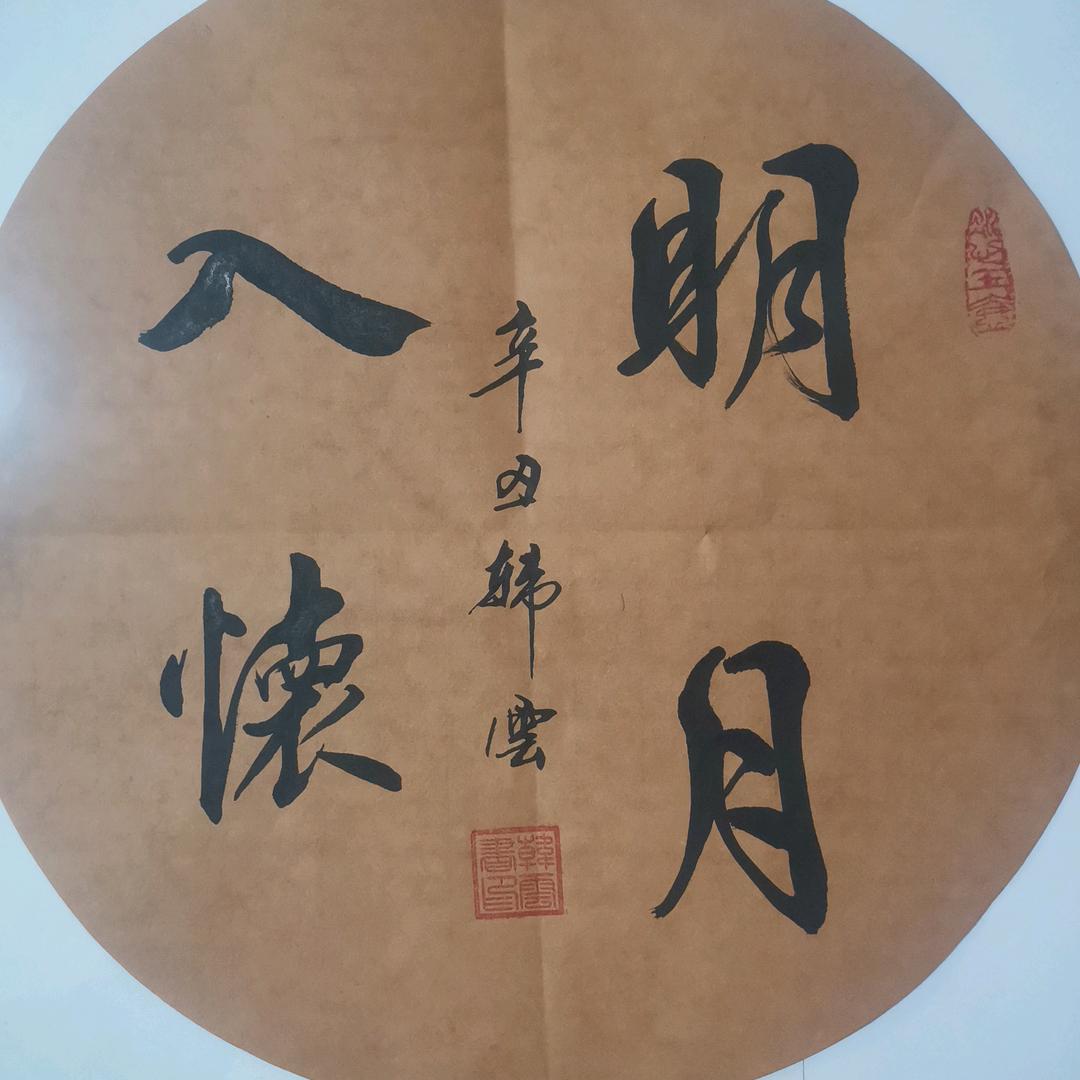 明月
入懷
辛丑韩雲
韓雲書印